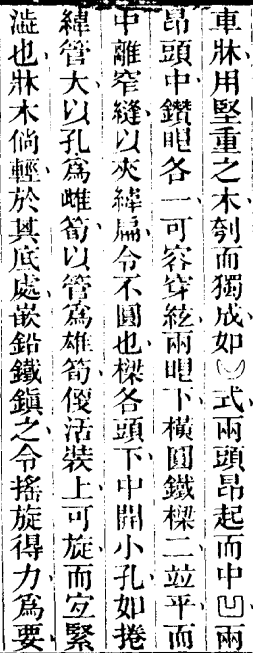 車牀用堅重之木刳而獨成如式兩頭昂起而中凹兩
昂頭中鑽眼各一可容穿絃兩眼下橫圓鐵樑二竝平而
中離窄縫以夾緯扁令不圓也樑各頭下中開小孔如捲
緯管大以孔爲雌筍以管爲雄筍便活裝上可旋而宜緊
澁也牀木倘輕於其底處嵌鉛鐵鎭之令搖旋得力爲要